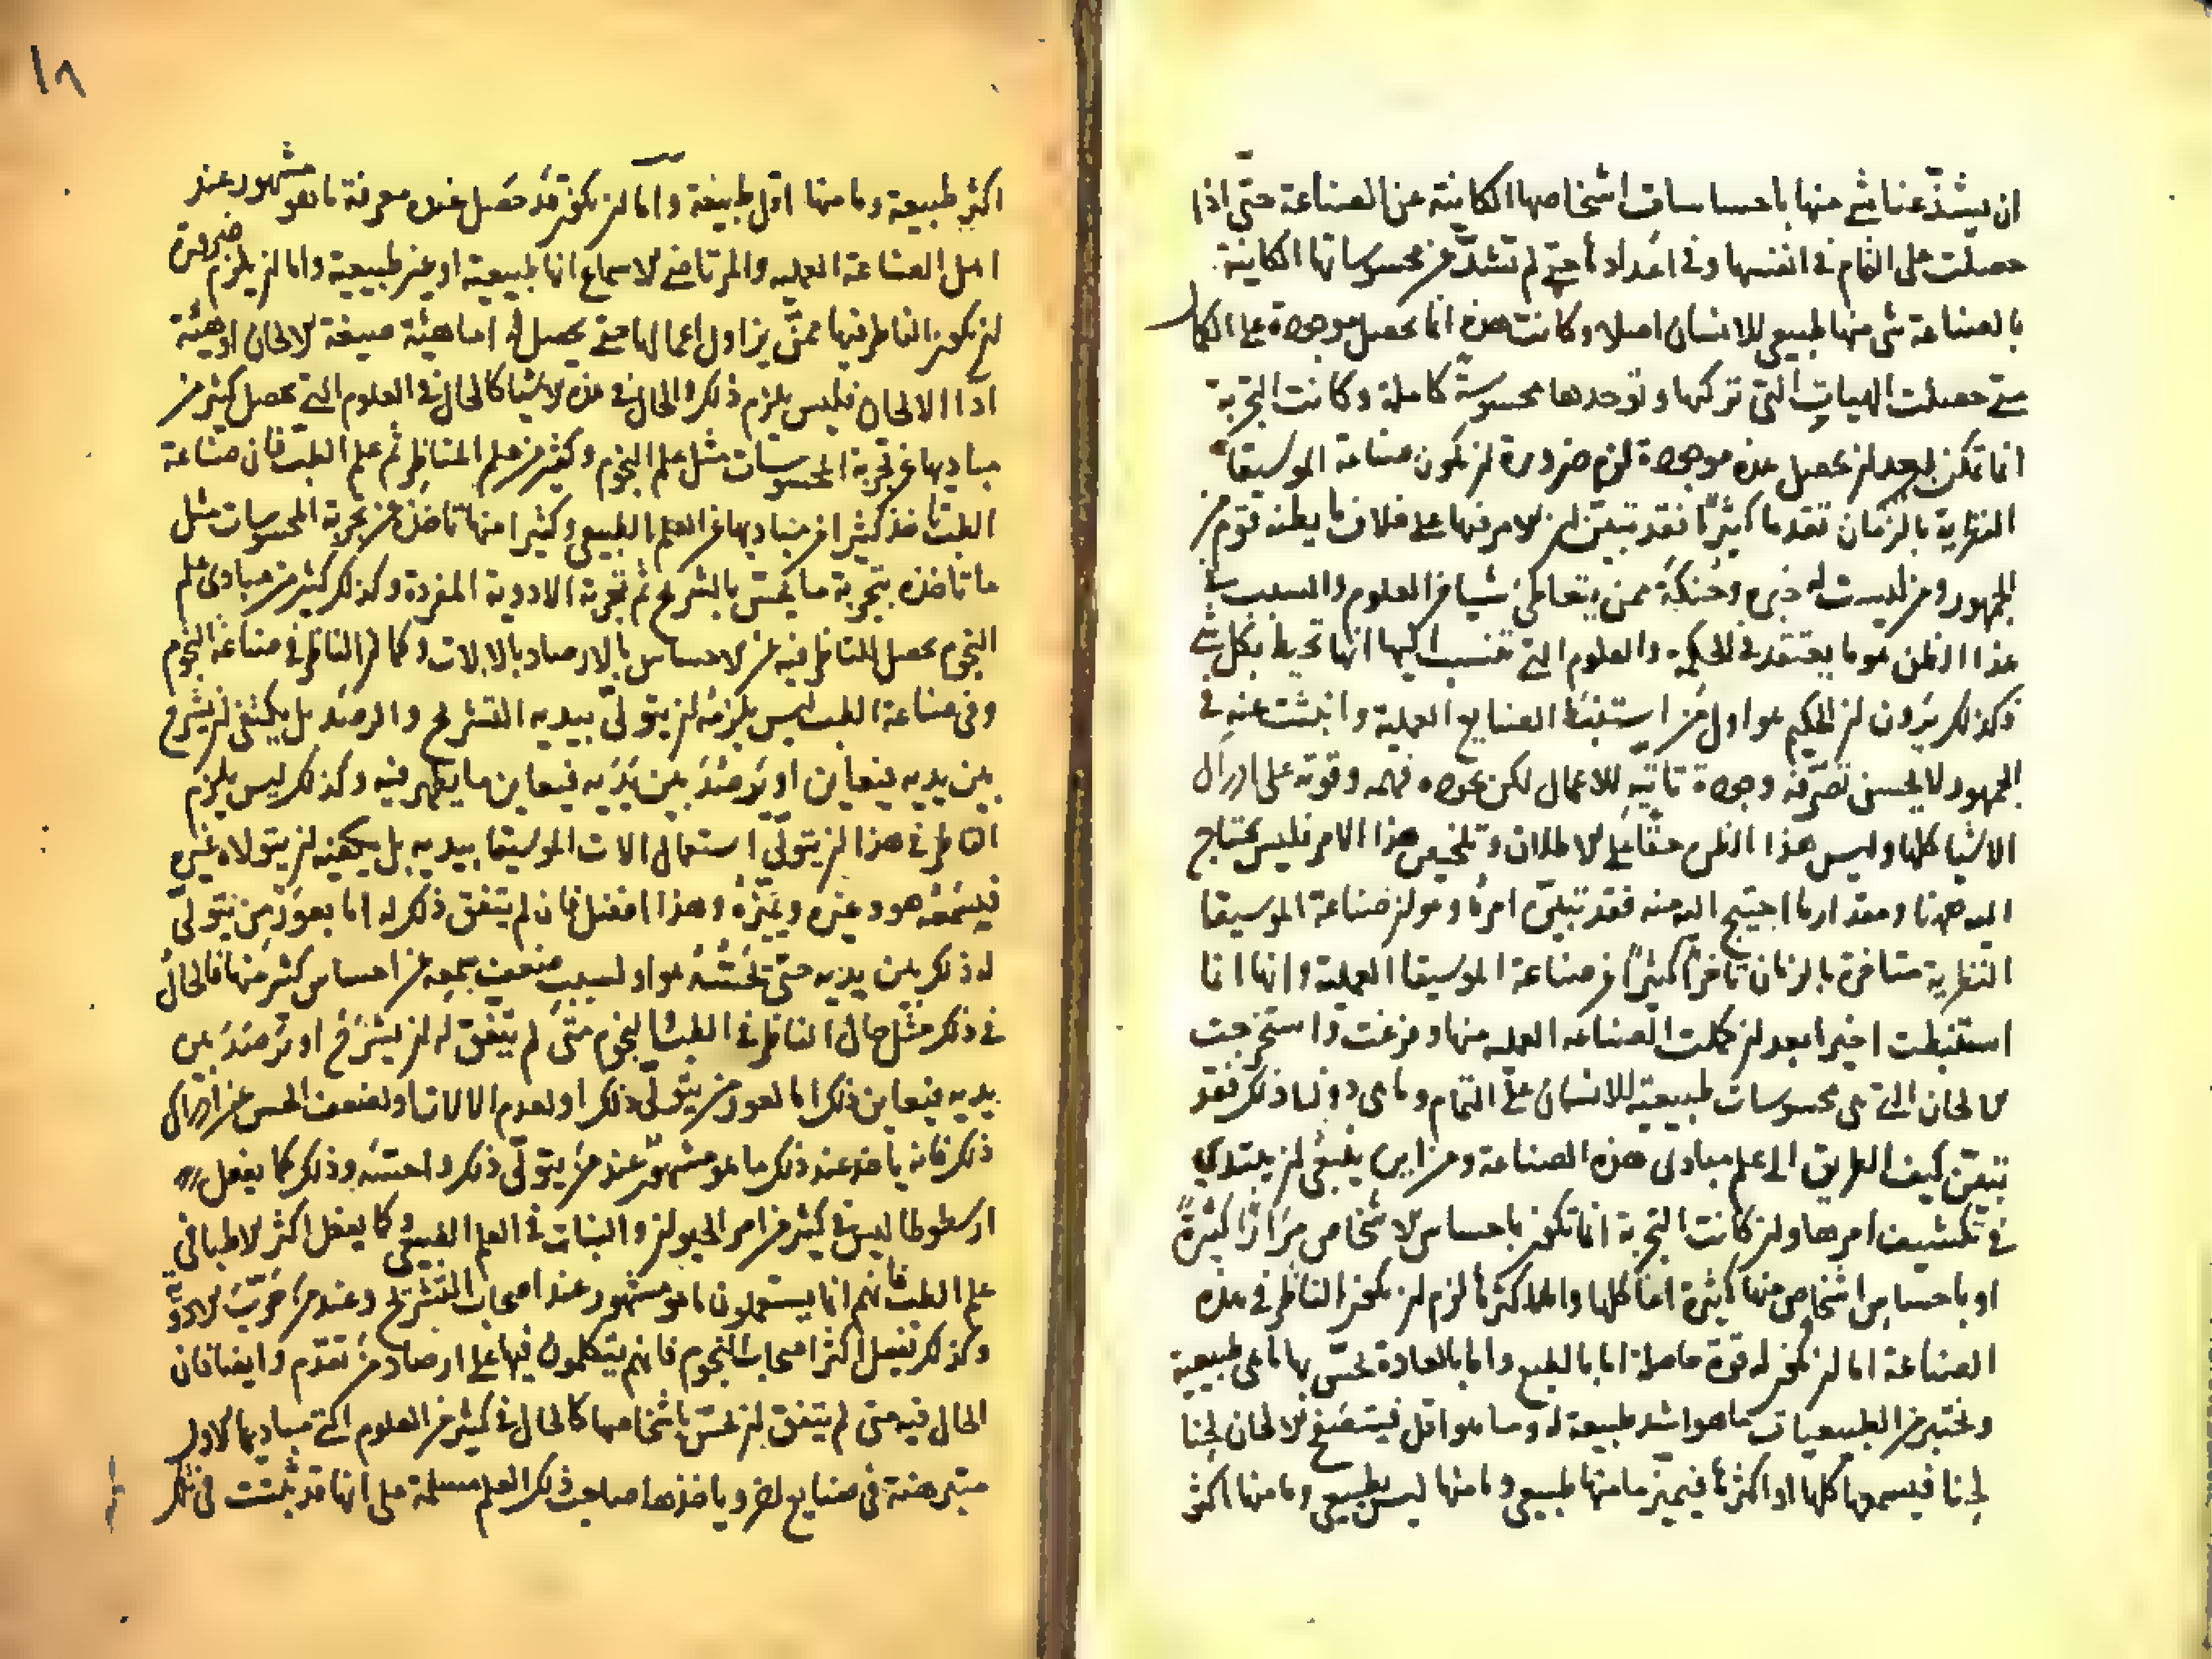 ان يشذ عنا شي منها باحساسات اشخاصها الكاينة عن الصناعة حتى اذا
حصلت على التمام في انفسها وفي اعدادها حتى لم تشذ من محسوساتها الكاينة
بالصناعة شي منها طبيعي للانسان اصلا وكانت هذه انما تحصل موجودة على الكمال
متى حصلت الهيات التي تركبها وتوجدها محسوسة كاملة وكانت التجربة
انما تكن بعد ان تحصل هذه موجودة لزم ضرورة ان تكون صناعة الموسيقا
النظرية بالزمان تقدما كثيرا فقد تبين ان الامر فيها على خلاف ما يظنه قوم من
الجمهور ومن ليست له خبره وحنكة ممن يتعاطى شيا من العلوم والسبب في
هذا الظن هو ما يعتقد في الحكمة والعلوم التي تنسب اليها انها تحيط بكل شي
فكذلك يرون ان الحكيم هو اول من استنبط الصنايع العملية وانبثت عنه في
الجمهور لا بحسن تصرفه وجودة تاتيه للاعمال لكن بجودة فهمه وقوته على ادراك
الاشيا كلها وليس هذا الظن حقا على الاطلاق وتلخيص هذا الامر فليس يحتاج
اليه ههنا ومقدار ما احتيج اليه منه فقد تبين امره وهو ان صناعة الموسيقا
النظرية متاخرة بالزمان تاخرا كثيرا عن صناعة الموسيقا العملية وانها انما
استنبطت اخيرا بعد ان كملت الصناعه العمليه منها وفرغت واستخرجت
الالحان التي هي محسوسات طبيعية للانسان على التمام وما هي دونها ذلك فقد
تبين كيف الطريق الى علم مبادى هذه الصناعة ومن اين ينبغي ان يبتدي
في تكشيف امرها ولان كانت التجربة انما تكون باحساس الاشخاص مرارا كثيرة
او باحساس اشخاص منها كثيرة اما كلها واما اكثرها لزم ان يكون الناظر في هذه
الصناعة اما ان تكون له قوة حاصلة اما بالطبع واما بالعادة يحس بها ما هي طبيعية
ويختبر من الطبيعيات ما هو اشد طبيعة له وما هو اقل فيتصفح الالحان لحنا
لحنا فيسمعها كلها او اكثرها فيميز ما منها طبيعي وما منها ليس بطبيعي وما منها اكثر
١٨
اكثر طبيعية وما منها اقل طبيعية واما ان يكون قد حصل عنده معرفة ما هو مشهور عند
اهل الصناعة العمليه والمرتاضي الاسماع انها طبيعية او غير طبيعية واما ان يلزم ضرورة
ان يكون الناظر فيها ممن يزاول اعمالها حتى يحصل له اما هيئة صيغة الالحان او هيئة
ادا الالحان فليس يلزم ذلك والحال في هذه الاشيا كالحال في العلوم التي تحصل كثير من
مباديها عن تجربة المحسوسات مثل علم النجوم وكثير من علم المناظر ثم علم الطب فان صناعة
الطب تاخذ كثيرا من مباديها من العلم الطبيعي وكثيرا منها تاخذه عن تجربة المحسوسات مثل
ما تاخذه بتجربة ما يحس بالتشريح ثم تجربة الادوية المفردة وكذلك كثير من مبادى علم
النجوم يحصل للناظر فيه عن الاحساس بالارصاد بالالات وكما ان الناظر في صناعة النجوم
وفي صناعة الطب ليس يلزمه ان يتولى بيديه التشريح والرصد بل يكتفى ان يشرح
بين يديه فيعاين او يرصد بين يديه فيعاين ما يظهر فيه وكذلك ليس يلزم
الناظر في هذا ان يتولى استعمال الات الموسيقا بيديه بل يكفيه ان يتولاه غيره
فيسمعه هو وغيره ويميزه وهذا افضل فان لم يتفق ذلك له اما بعوز من يتولى
له ذلك بين يديه حتى يحسه هو او لسبب ضعف سمعه عن احساس كثير منها فالحال
في ذلك مثل حال الناظر في الطب والنجوم متى لم يتفق له ان يشرح او يرصد بين
يديه فيعاين ذلك اما لعوز من يتولى ذلك او لعدم الالات او لضعف الحس عن ادراك
ذلك فانه ياخذ عند ذلك ما هو مشهور عند من يتولى ذلك واحسه وذلك كما يفعل
ارسطوطاليس في كثير من امر الحيوان والنبات في العلم الطبيعي وكما يفعل اكثر الاطبا في
علم الطب فانهم انما يستعملون ما هو مشهور عند اصحاب التشريح وعند من جرب الادوية
وكذلك يفعل اكثر اصحاب النجوم فانهم يتكلمون فيها على ارصاد من تقدم وايضا فان
الحال فيه متى لم يتفق ان تحس اشخاصها كالحال في كثير من العلوم التي مباديها الاول
متبرهنة في صنايع اخر وياخذها صاحب ذلك العلم مسلمة على انها قد تبينت في تلك